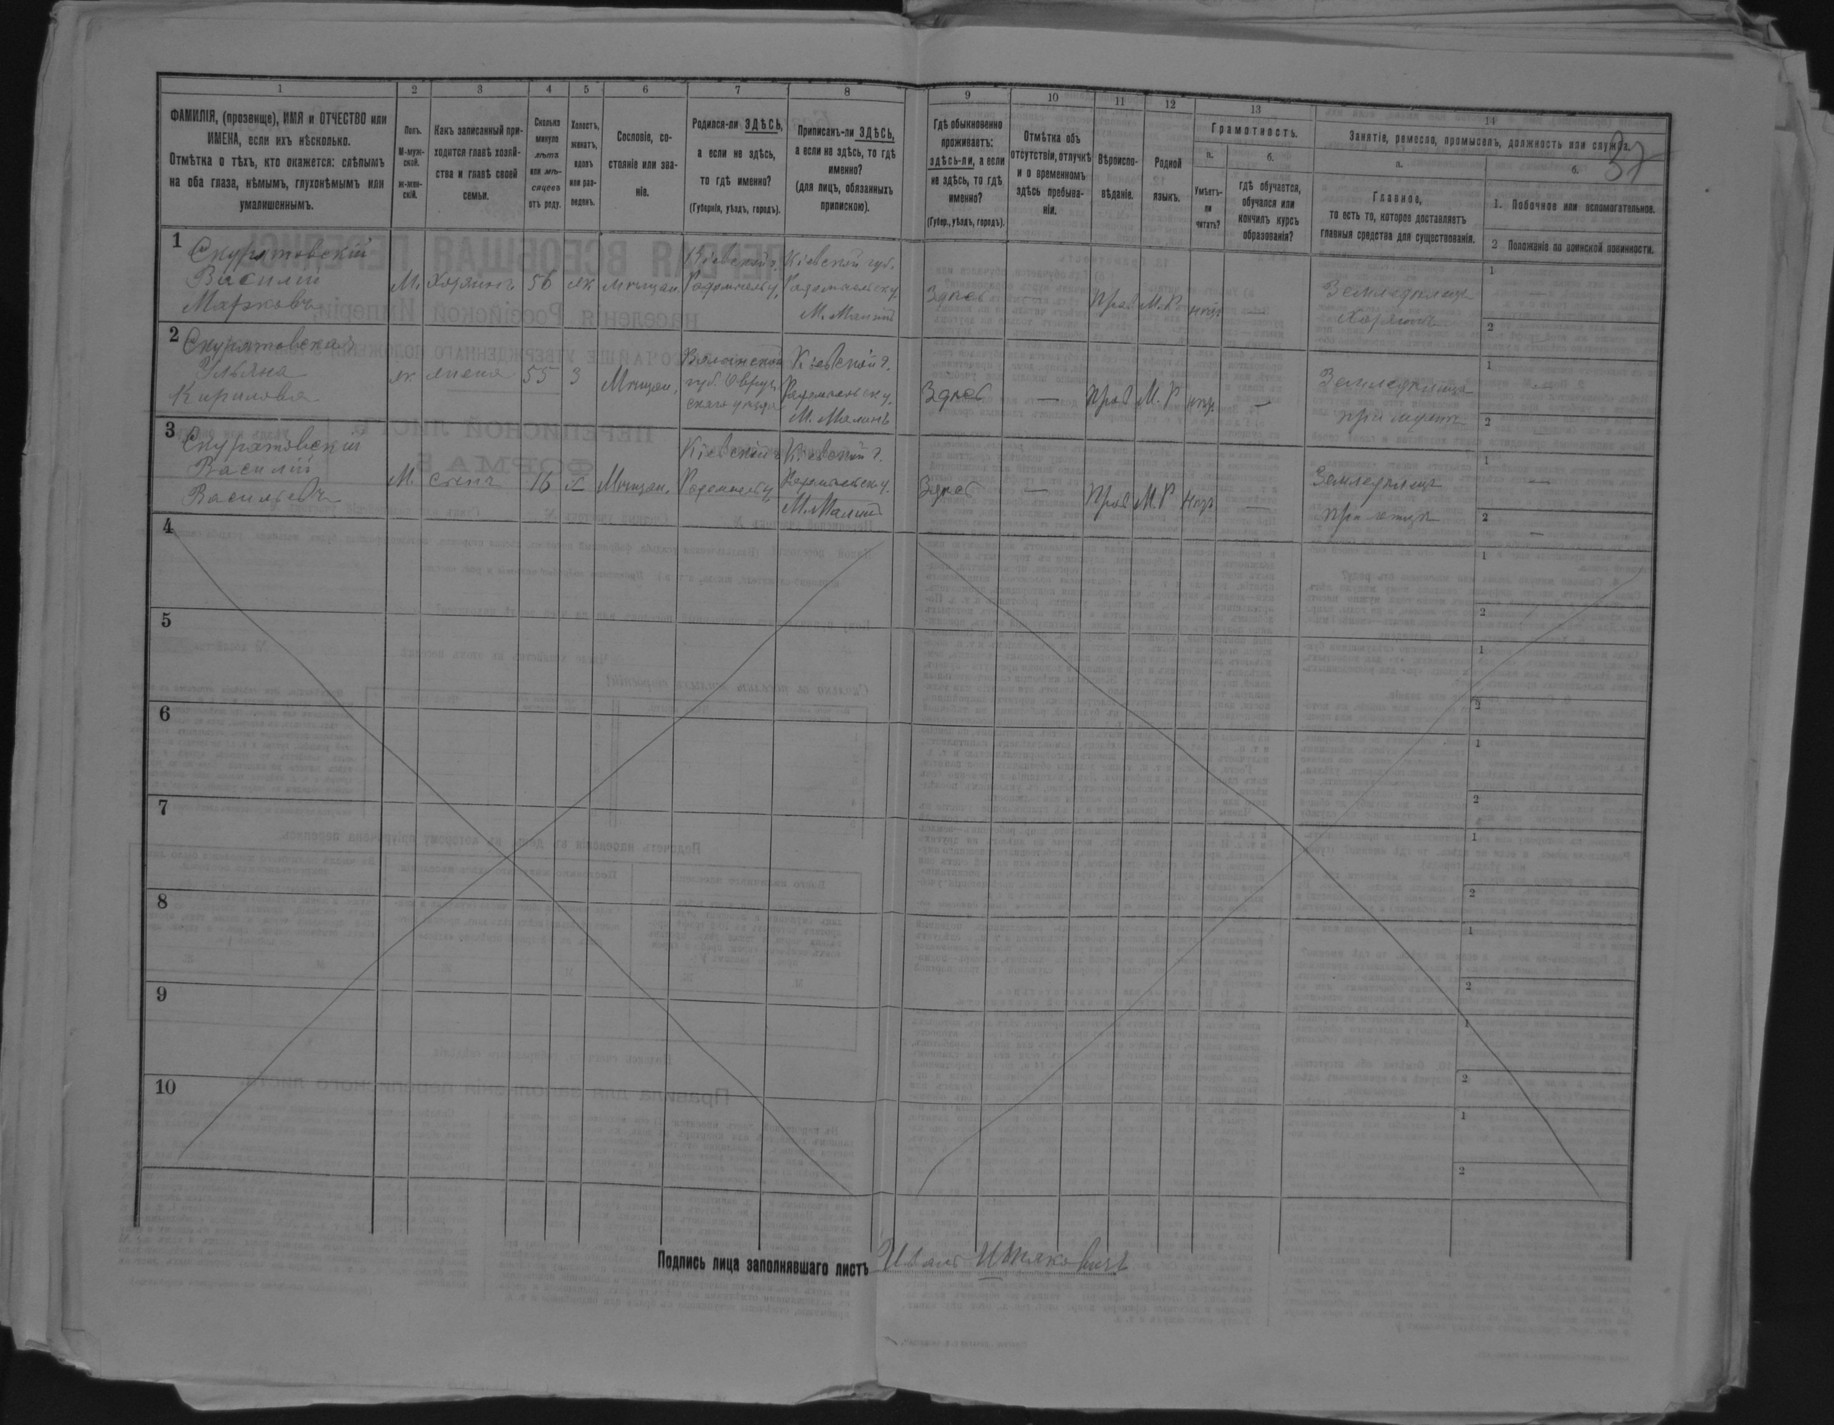 1 2 3 4 5 6 7 8 9 10 11 12 13 14
37
ФАМИЛІЯ, (прозвище), ИМЯ и ОТЧЕСТВО или
ИМЕНА, если ихъ нѣсколько.
Отмѣтка о тѣхъ, кто окажется: слѣпымъ
на оба глаза, нѣмымъ, глухонѣмымъ или
умалишеннымъ.
Полъ.
М-муж-
ской.
ж-жен-
скій.
Какъ записанный при-
ходится главѣ хозяй-
ства и главѣ своей
семьи.
Сколько
минуло
лѣтъ
или мѣ-
сяцевъ
отъ роду.
Холостъ,
женатъ,
вдовъ
или раз-
веденъ.
Сословіе, со-
стояніе или зва-
ніе.
Родился-ли ЗДѢСЬ,
а если не здѣсь,
то гдѣ именно?
(Губернія, уѣздъ, городъ).
Приписанъ-ли ЗДѢСЬ,
а если не здѣсь, то гдѣ
именно?
(для лицъ, обязанныхъ
припискою).
Гдѣ обыкновенно
проживаетъ:
здѣсь-ли, а если
не здѣсь, то гдѣ
именно?
(Губер., уѣздъ, городъ).
Отмѣтка объ
отсутствіи, отлучкѣ
и о временномъ
здѣсь пребыва-
ніи.
Вѣроиспо-
вѣданіе.
Родной
языкъ.
Грамотность.
а.
Умѣетъ-
ли
читать?
б.
гдѣ обучается,
обучался или
кончилъ курсъ
образованія?
Занятіе, ремесло, промыселъ, должность или служба.
а.
Главное,
то есть то, которое доставляетъ
главныя средства для существованія.
б.
1. Побочное или вспомогательное.
2 Положеніе по воинской повинности.
1
Скуратовскій
Василій
Марковъ
М. Хозяинъ 56 ж мѣщан.
Кіевской г.
Радомысльс. у.
Кіевской губ.
Радомысльск. у.
М. Малинъ
Здѣсь — Прав М. Р нѣтъ
Земледѣлецъ
Хозяинъ
1 —
2
2
Скуратовская
Ульяна
Кирилова
ж жена 55 З Мѣщан.
Волынской
губ. Овруч
скаго уѣзда
Кіевской г.
Радомысльск. у.
М. Малинъ
Здѣсь — Прав М. Р нѣтъ —
Земледѣлица
при мужѣ
1
2 —
3
Скуратовскій
Василій
Васильевъ
М. сынъ 16 Х Мѣщан.
Кіевской г.
Радомысльс. у.
Кіевской г.
Радомысльск. у.
М. Малинъ
Здѣсь — Прав М. Р нѣтъ —
Земледѣлецъ
при отцѣ
1 —
2 —
4 1
2
5 1
2
6 1
2
7 1
2
8 1
2
9 1
2
10 1
2
Подпись лица заполнявшаго листъ Иванъ